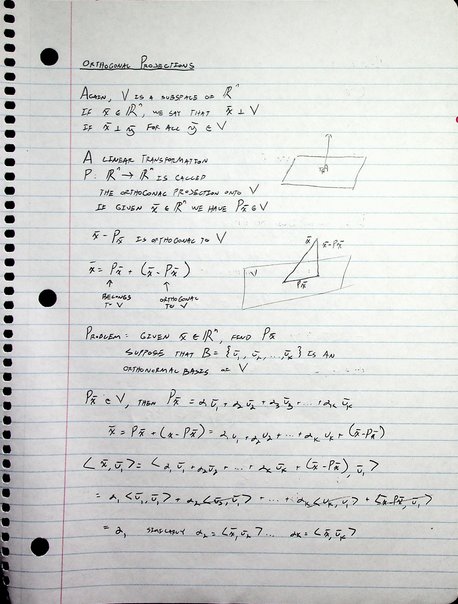 ORTHOGONAL PROJECTIONS
AGAIN, V IS A SUBSPACE OF ℝⁿ
IF x̄ ∈ ℝⁿ, WE SAY THAT x̄ ⊥ V
IF x̄ ⊥ ȳ FOR ALL ȳ ∈ V
A LINEAR TRANSFORMATION
P: ℝⁿ → ℝⁿ IS CALLED
THE ORTHOGONAL PROJECTION ONTO V
IF GIVEN x̄ ∈ ℝⁿ WE HAVE Px̄ ∈ V
x̄ - Px̄ IS ORTHOGONAL TO V
x̄ x̄ - Px̄
V
Px̄
x̄ = Px̄ + (x̄ - Px̄)
↑ ↑
BELONGS ORTHOGONAL
TO V TO V
PROBLEM: GIVEN x̄ ∈ ℝⁿ, FIND Px̄
SUPPOSE THAT B = {ū₁, ū₂, ..., ūₖ} IS AN
ORTHONORMAL BASIS OF V
Px̄ ∈ V, THEN Px̄ = α₁ū₁ + α₂ū₂ + α₃ū₃ + ... + αₖūₖ
x̄ = Px̄ + (x - Px̄) = α₁u₁ + α₂u₂ + ... + αₖuₖ + (x̄ - Px̄)
⟨x̄, ū₁⟩ = ⟨α₁ū₁ + α₂ū₂ + ... + αₖūₖ + (x̄ - Px̄), ū₁⟩
= α₁⟨ū₁, ū₁⟩ + α₂⟨ū₂, ū₁⟩ + ... + αₖ⟨uₖ, u₁⟩ + ⟨x̄ - Px̄, ū₁⟩
= α₁ SIMILARLY α₂ = ⟨x̄, ū₂⟩ ... αₖ = ⟨x̄, ūₖ⟩